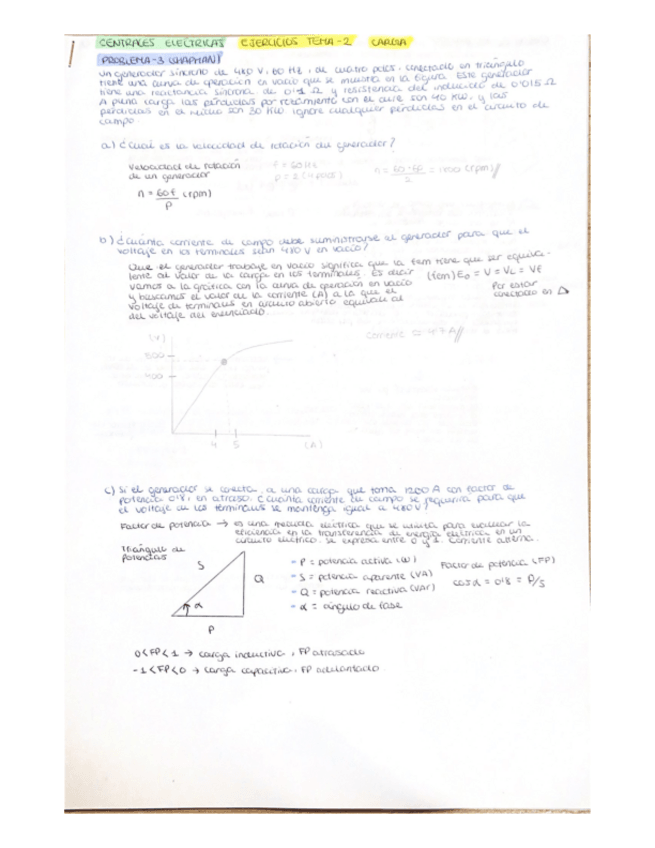 CENTRALES ELÉCTRICAS EJERCICIOS TEMA-2 CARGIA
PROBLEMA-3 (CHAPMAN)
Un generador síncrono de 480 V, 60 Hz, de cuatro polos, conectado en triángulo
tiene una curva de operación en vacío que se muestra en la figura. Este generador
tiene una reactancia síncrona de 0'1 Ω y resistencia del inducido de 0'015 Ω
A plena carga las pérdidas por rozamiento con el aire son 40 KW, y las
pérdidas en el núcleo son 30 KW ignore cualquier pérdidas en el circuito de
campo.
a) ¿Cual es la velocidad de rotación del generador?
Velocidad de rotación
de un generador
n = 60f / P (rpm)
f = 60 Hz
p = 2 (4 polos)
n = 60·60 / 2 = 1800 (rpm)//
b) ¿Cuánta corriente de campo debe suministrarse al generador para que el
voltaje en los terminales sean 480 V en vacío?
Que el generador trabaje en vacío significa que la fem tiene que ser equiva-
lente al valor de la carga en los terminales. Es decir
vamos a la gráfica con la curva de operación en vacío
y buscamos el valor de la corriente (A) a la que el
voltaje de terminales en circuito abierto equivale al
del voltaje del enunciado.
(fem) E₀ = V = VL = Vf
Por estar
conectado en Δ
Corriente ≈ 4'7 A//
(V)
500
400
4 5 (A)
c) Si el generador se conecta a una carga que toma 1200 A con factor de
potencia 0'8, en atraso. ¿Cuánta corriente de campo se requerirá para que
el voltaje de los terminales se mantenga igual a 480 V?
Factor de potencia → es una medida eléctrica que se utiliza para evaluar la
eficiencia en la transferencia de energía eléctrica en un
circuito eléctrico. Se expresa entre 0 y 1. Corriente alterna.
Triángulo de
potencias
S
Q
α
P
- P = potencia activa (W)
- S = potencia aparente (VA)
- Q = potencia reactiva (VAr)
- α = ángulo de fase
Factor de potencia (FP)
cos α = 0'8 = P/S
0 < FP < 1 → carga inductiva, FP atrasado
-1 < FP < 0 → carga capacitiva, FP adelantado